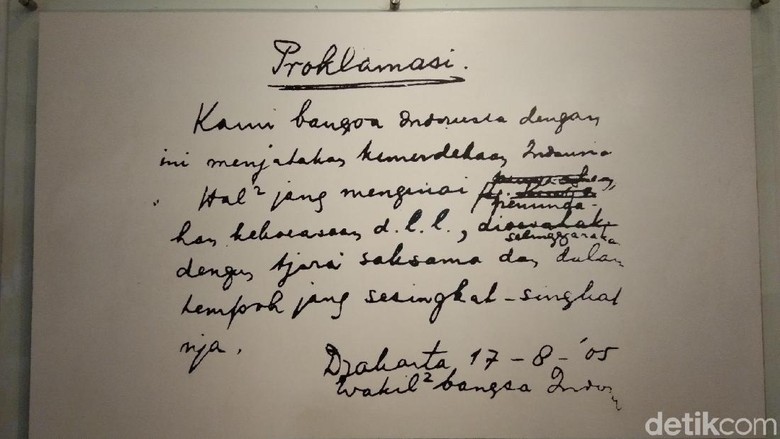 Proklamasi.
Kami bangsa Indonesia dengan
ini menjatakan kemerdekaan Indonesia
Hal² jang mengenai
peminda-
han kekoeasaan d.l.l.,
selenggarakan
dengan tjara saksama dan dalam
tempoh jang sesingkat-singkat
nja.
Djakarta 17 - 8 - '05
Wakil² bangsa Indon
detikcom